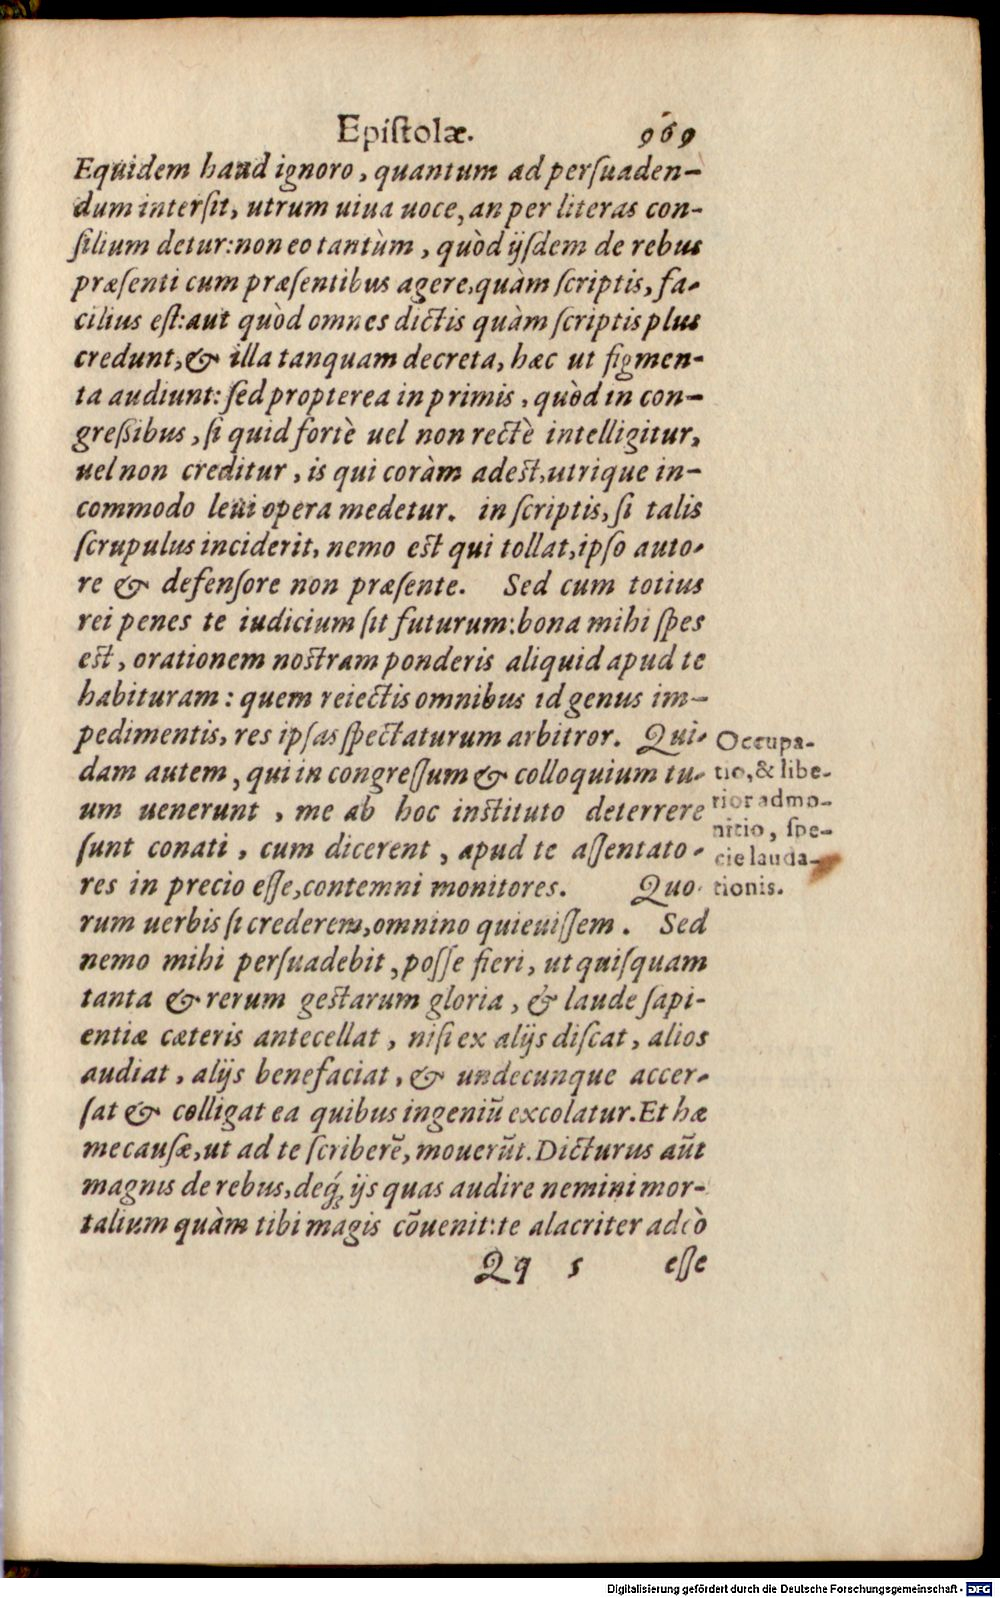 Epiſtolæ. 969
Equidem haud ignoro, quantum ad perſuaden-
dum interſit, utrum uiua uoce, an per literas con-
ſilium detur: non eo tantùm, quòd ijſdem de rebus
præſenti cum præſentibus agere, quàm ſcriptis, fa-
cilius eſt: aut quòd omnes dictis quàm ſcriptis plus
credunt, & illa tanquam decreta, hæc ut figmen-
ta audiunt: ſed propterea in primis, quòd in con-
greßibus, ſi quid fortè uel non rectè intelligitur,
uel non creditur, is qui coràm adeſt, utrique in-
commodo leui opera medetur. in ſcriptis, ſi talis
ſcrupulus inciderit, nemo eſt qui tollat, ipſo auto-
re & defenſore non præſente. Sed cum totius
rei penes te iudicium ſit futurum: bona mihi ſpes
eſt, orationem noſtram ponderis aliquid apud te
habituram: quem reiectis omnibus id genus im-
pedimentis, res ipſas ſpectaturum arbitror. Qui-
dam autem, qui in congreſſum & colloquium tu-
um uenerunt, me ab hoc inſtituto deterrere
ſunt conati, cum dicerent, apud te aſſentato-
res in precio eſſe, contemni monitores. Quo
rum uerbis ſi crederem, omnino quieuiſſem. Sed
nemo mihi perſuadebit, poſſe fieri, ut quiſquam
tanta & rerum geſtarum gloria, & laude ſapi-
entiæ cæteris antecellat, niſi ex alijs diſcat, alios
audiat, alijs benefaciat, & undecunque accer-
ſat & colligat ea quibus ingeniū excolatur. Et hæ
me cauſæ, ut ad te ſcriberē, mouerūt. Dicturus aūt
magnis de rebus, deq́ꝫ ijs quas audire nemini mor-
talium quàm tibi magis cōuenit: te alacriter adeò
Qq 5 eſſe
Occupa-
tio, & libe-
rior admo-
nitio, ſpe-
cie lauda-
tionis.
Digitalisierung gefördert durch die Deutsche Forschungsgemeinschaft - DFG